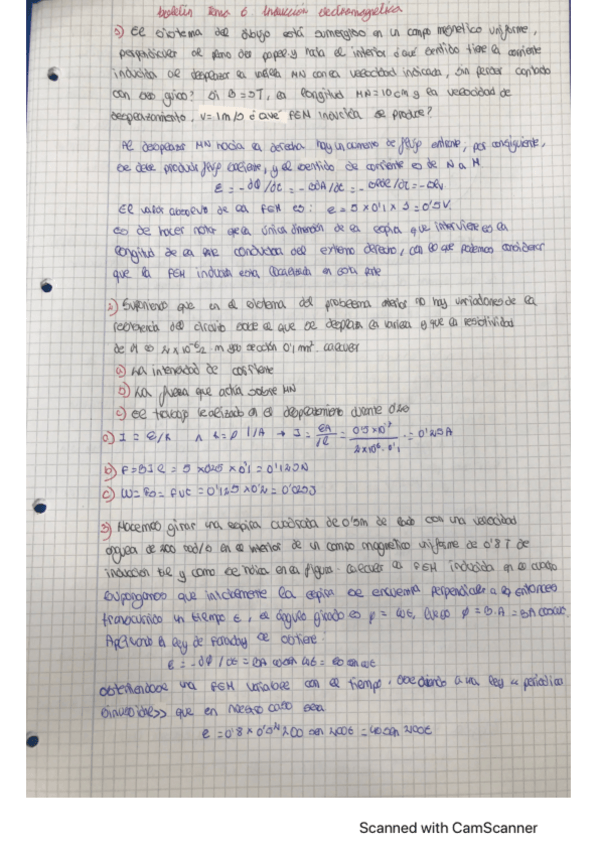 Boletín Tema 6 Inducción electromagnética
1) El sistema del dibujo está sumergido en un campo magnético uniforme,
perpendicular al plano del papel y hacia el interior ¿qué sentido tiene la corriente
inducida al desplazar la varilla MN con la velocidad indicada, sin perder contacto
con el ? Si B = 5T, la longitud MN = 10cm y la velocidad de
desplazamiento, v = 1m/s ¿qué FEM inducida se produce?
Al desplazar MN hacia la derecha hay un aumento de flujo entrante, por consiguiente,
se debe producir flujo saliente, y el sentido de corriente es de N a M
E = -dΦ/dt = -BdA/dt = - /dt = -Blv
El valor absoluto de la FEM es: e = 5 x 0'1 x 1 = 0'5V.
es de hacer notar que la única dimensión de la espira que interviene es la
longitud de la parte conductora del extremo derecho, con lo que podemos considerar
que la FEM inducida está localizada en esta parte
2) Suponiendo que en el sistema del problema anterior no hay variaciones de la
resistencia del circuito sobre el que se desplaza la varilla y que la resistividad
de él es 2x10⁻⁶Ω m y su sección 0'1 mm². calcular
a) La intensidad de corriente
b) La fuerza que actúa sobre MN
c) el trabajo realizado en el desplazamiento durante
a) I = E/R ∧ R = ρ l/A → I = EA/ρl = = 0'25A
b) F = BIl = 5 x 0'25 x 0'1 = 0'125N
c) W = = Fvt = 0'125 x 0'2 = 0'025J
3) Hacemos girar una espira cuadrada de 0'5m de lado con una velocidad
angular de 200 rad/s en el interior de un campo magnético uniforme de 0'8 T de
inducción tal y como se indica en la figura. calcular la FEM inducida en el cuadro
Supongamos que inicialmente la espira se encuentra perpendicular a B, entonces
transcurrido un tiempo t, el ángulo girado es φ = ωt, luego Φ = B·A = BA cosωt.
Aplicando la ley de Faraday se obtiene:
e = -dΦ/dt = BA ω sen ωt = E₀ sen ωt
obteniéndose una FEM variable con el tiempo, obedeciendo a una ley periódica
sinusoidal, que en nuestro caso será
e = 0'8 x 0'5² x 200 sen 200t = 40 sen 200t
Scanned with CamScanner